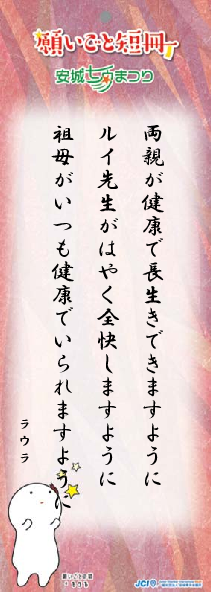 願いごと短冊
安城七夕まつり
両親が健康で長生きできますように
ルイ先生がはやく全快しますように
祖母がいつも健康でいられますように
ラウラ
願いごと短冊
JCI